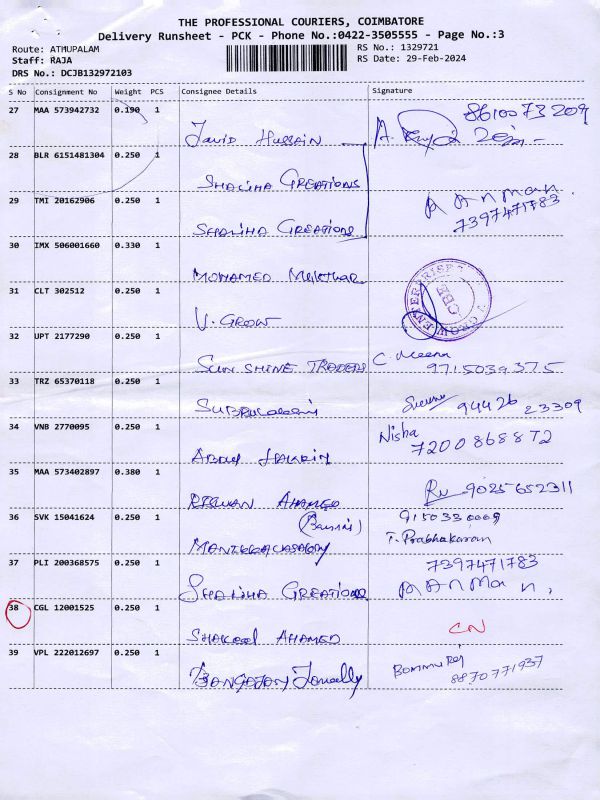 THE PROFESSIONAL COURIERS, COIMBATORE
Delivery Runsheet - PCK - Phone No.:0422-3505555 - Page No.:3
Route: ATHUPALAM
RS No.: 1329721
Staff: RAJA
RS Date: 29-Feb-2024
DRS No.: DCJB132972103
S No Consignment No Weight PCS Consignee Details Signature
27 MAA 573942732 0.190 1
8610073209
Javid Hussain
28 BLR 6151481304 0.250 1
SHALIHA CREATIONS
AANMAN
29 TMI 20162906 0.250 1
7397471783
SHALIHA CREATIONS
30 IMX 506001660 0.330 1
MOHAMED Mukthar
31 CLT 302512 0.250 1
V GROW ENTERPRISES
CBE
V. GROW
32 UPT 2177290 0.250 1
SUN SHINE TRADERS C. Meena
9715039375
33 TRZ 65370118 0.250 1
94426 23309
34 VNB 2770095 0.250 1
Nisha
7200868872
ABDUL HAKKIM
35 MAA 573402897 0.380 1
RISWAN AHAMED 9025652311
36 SVK 15041624 0.250 1
9150330009
T. Prabhakaran
37 PLI 200368575 0.250 1
7397471783
SHALIHA CREATIONS AANMAN.
38 CGL 12001525 0.250 1
SHAKEEL AHAMED CN
39 VPL 222012697 0.250 1
BOMMURAJ
8870771937